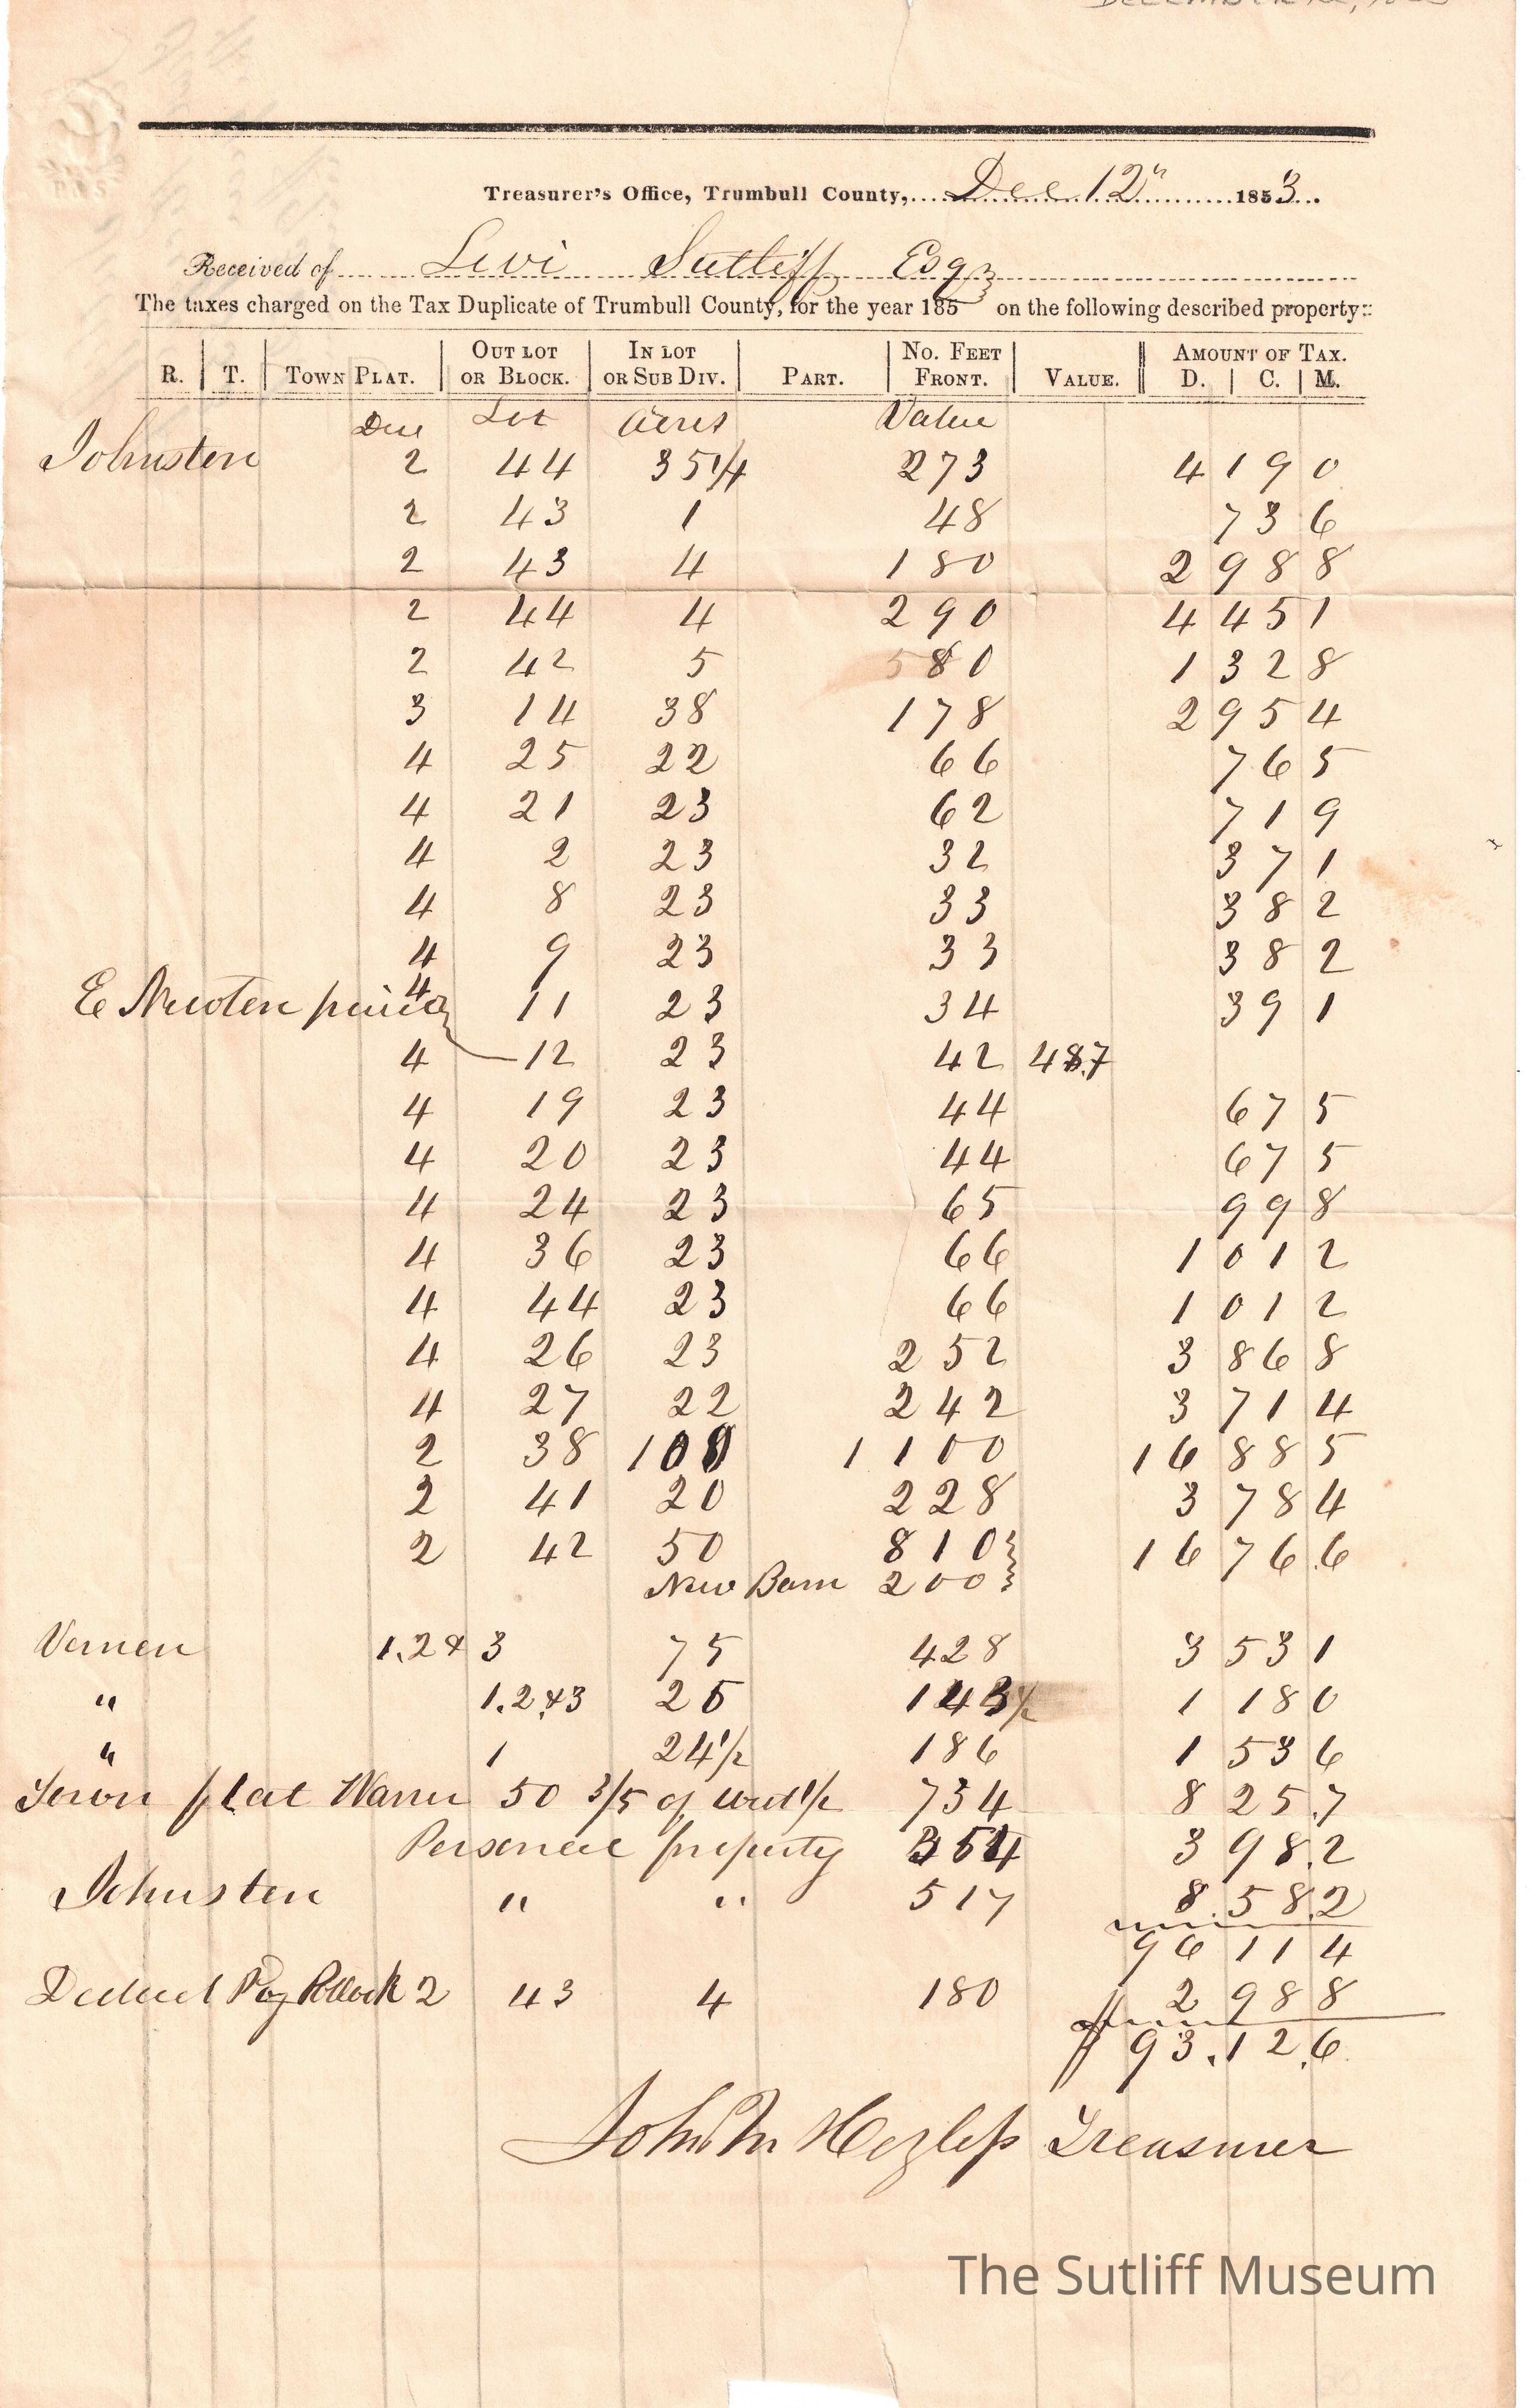 Treasurer's Office, Trumbull County, Dec 12" 1853
Received of Levi Sutliff Esqr
The taxes charged on the Tax Duplicate of Trumbull County, for the year 185 on the following described property:
R. | T. | TOWN PLAT. | OUT LOT OR BLOCK. | IN LOT OR SUB DIV. | PART. | No. FEET FRONT. | VALUE. | AMOUNT OF TAX. D. | C. | M.
Lot Acres Value
Johnston 2 44 35 1/4 273 4 19 0
2 43 1 48 73 6
2 43 4 180 2 98 8
2 44 4 290 4 45 1
2 42 5 80 1 32 8
3 14 38 178 2 95 4
4 25 22 66 76 5
4 21 23 62 71 9
4 2 23 32 37 1
4 8 23 33 38 2
4 9 23 33 38 2
E Newton paid 4 11 23 34 39 1
4 12 23 42 48.7
4 19 23 44 67 5
4 20 23 44 67 5
4 24 23 65 99 8
4 36 23 66 1 01 2
4 44 23 66 1 01 2
4 26 23 252 3 86 8
4 27 22 242 3 71 4
2 38 100 1100 16 88 5
2 41 20 228 3 78 4
2 42 50 810 16 76.6
New Barn 200
Vernon 1.2 & 3 75 428 3 53 1
" 1.2.&3 25 143 1/2 1 18 0
" 1 24 1/2 186 1 53 6
Town plat Warren 50 3/5 of west 1/2 734 8 25.7
Personal property 354 3 98.2
Johnston " " 517 8.58.2
96 11 4
Deduct Pollock 2 43 4 180 2 98 8
$93.12.6
John M Hezlep Treasurer
The Sutliff Museum